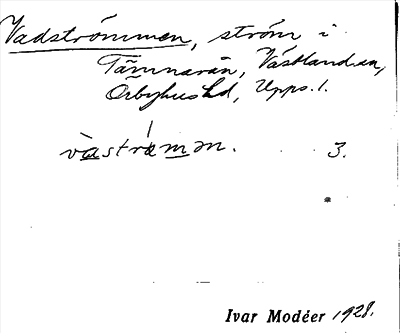 Vadströmmen, ström i
Tämnarån, Västland sn,
Örbyhus hd, Upps. l.
vàstrǿmən. 3.
Ivar Modéer 1928.